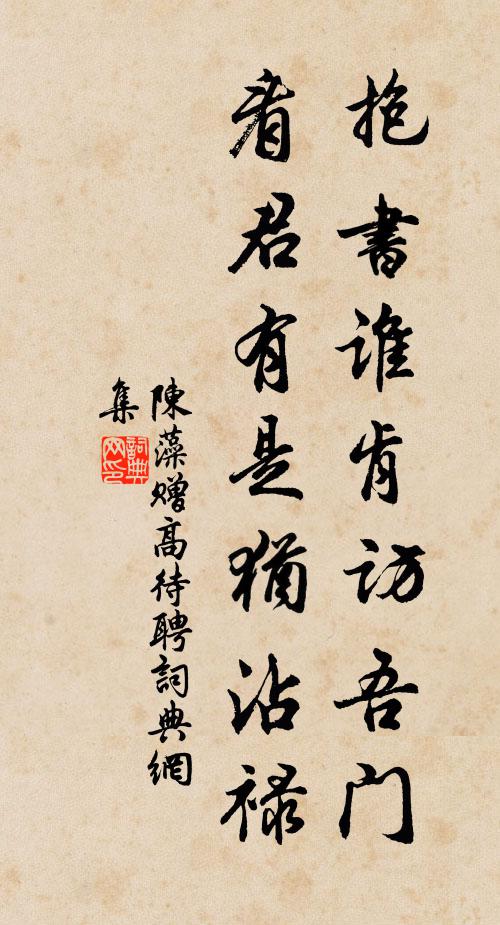 抱書誰肯訪吾門
看君有是猶沾祿
陳藻贈高待聘詞典網
集
詞典
网印